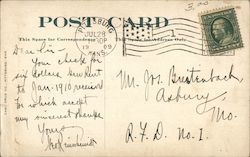 POST CARD
This Space for Correspondence
This Space for Address Only.
PITTSBURG
JUL 28
1909
KANS.
3.00
Dear Sir –
Your check for
six dollars
to Jan. 1910 received
for which accept
my sincerest thanks.
Yours
Mr. Jos. Breitenbach
Asbury
Mo.
R.F.D. No. 1.